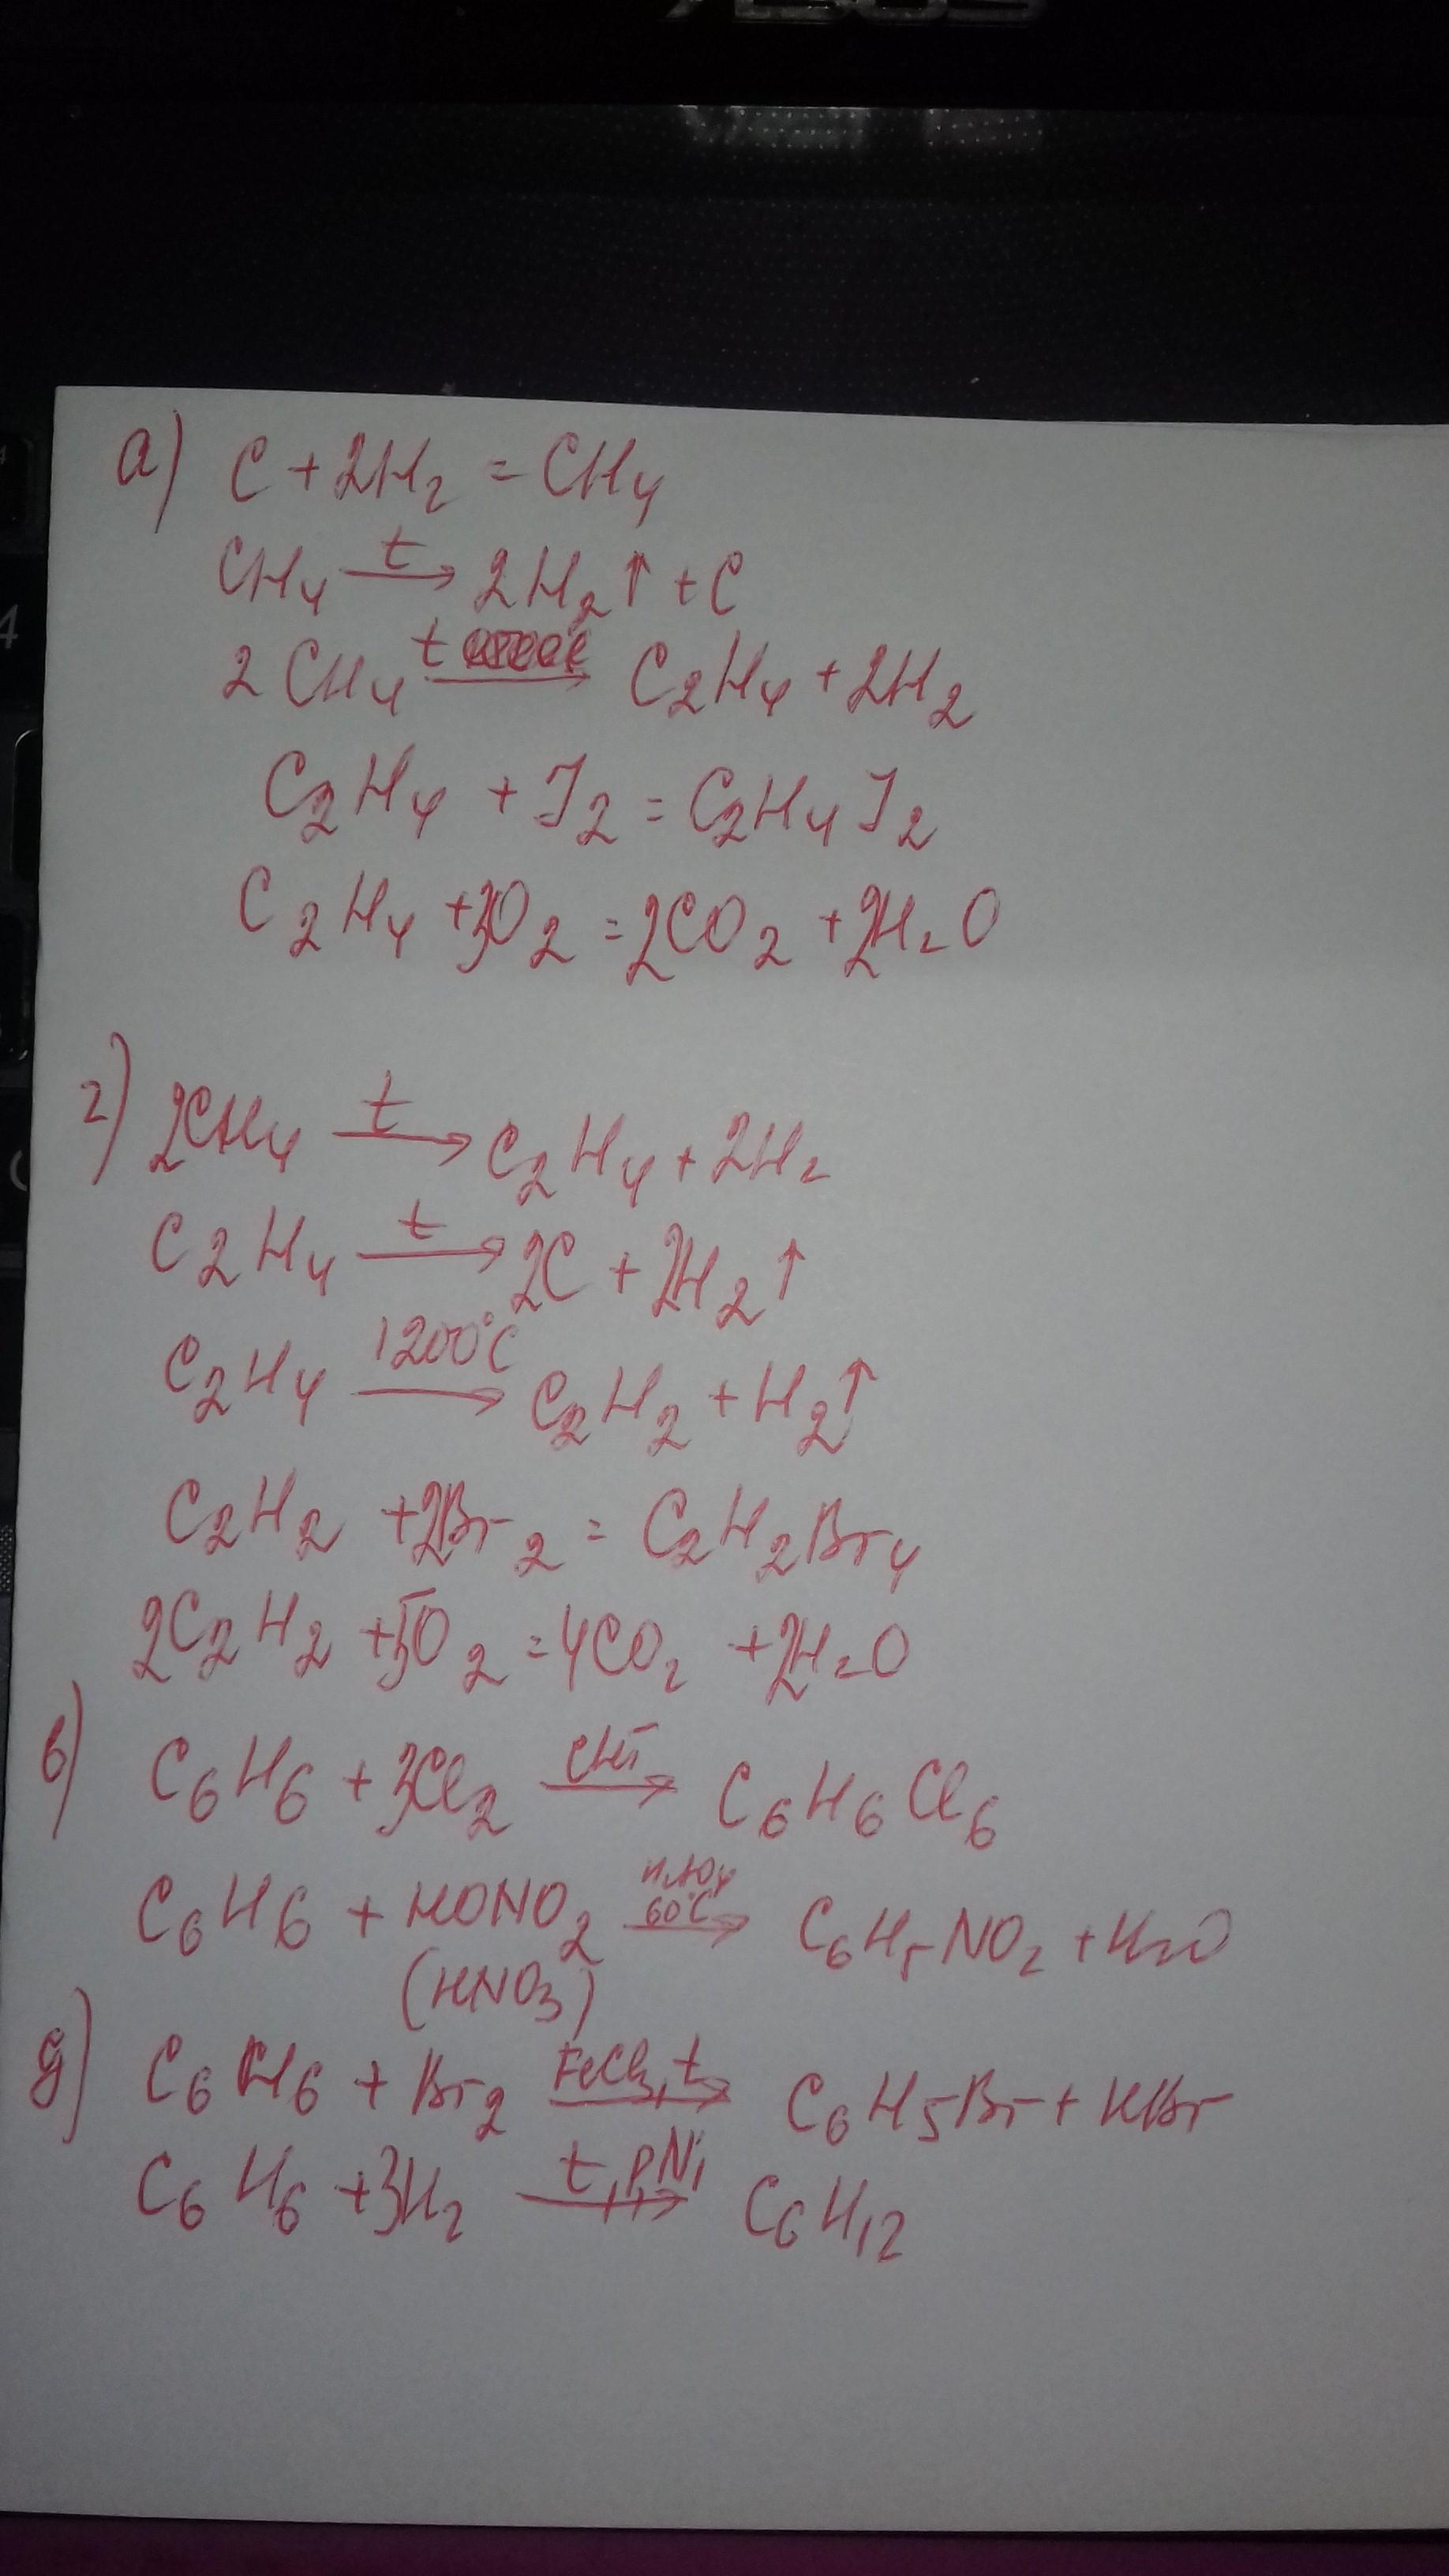 ASUS
а) C + 2H₂ = CH₄
CH₄ →(t) 2H₂↑ + C
2CH₄ →(t) C₂H₄ + 2H₂
C₂H₄ + J₂ = C₂H₄J₂
C₂H₄ + 3O₂ = 2CO₂ + 2H₂O
г) 2CH₄ →(t) C₂H₄ + 2H₂
C₂H₄ →(t) 2C + 2H₂↑
C₂H₄ →(1200°C) C₂H₂ + H₂↑
C₂H₂ + 2Br₂ = C₂H₂Br₄
2C₂H₂ + 5O₂ = 4CO₂ + 2H₂O
в) C₆H₆ + 3Cl₂ → C₆H₆Cl₆
C₆H₆ + HONO₂ →(60°C) C₆H₅NO₂ + H₂O
(HNO₃)
д) C₆H₆ + Br₂ →(FeCl₃, t) C₆H₅Br + HBr
C₆H₆ + 3H₂ →(t, p, Ni) C₆H₁₂